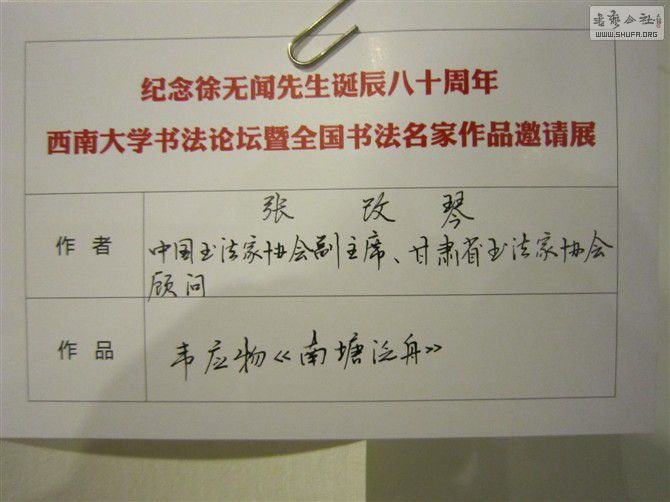 书法公社
WWW.SHUFA.ORG
纪念徐无闻先生诞辰八十周年
西南大学书法论坛暨全国书法名家作品邀请展
作者
张改琴
中国书法家协会副主席、甘肃省书法家协会
顾问
作品
韦应物《南塘泛舟》